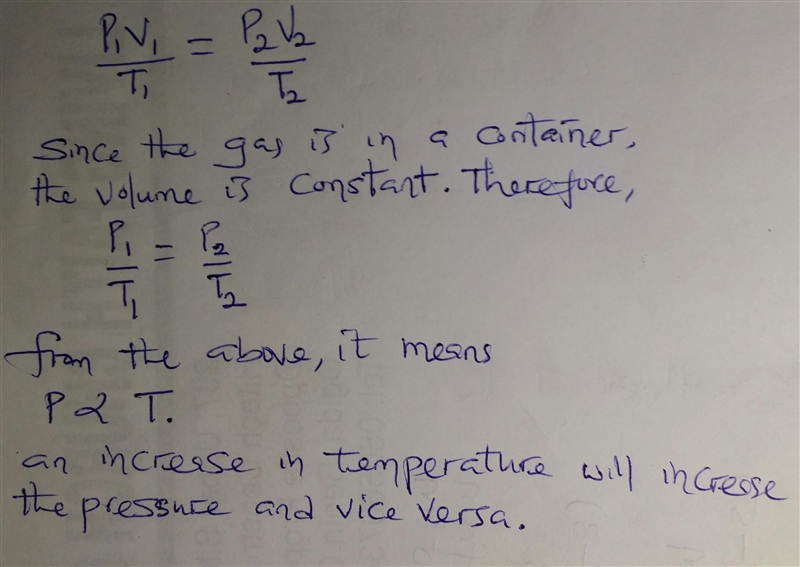 P₁V₁/T₁ = P₂V₂/T₂
Since the gas is in a container,
the volume is constant. Therefore,
P₁/T₁ = P₂/T₂
from the above, it means
P ∝ T.
an increase in temperature will increase
the pressure and vice versa.